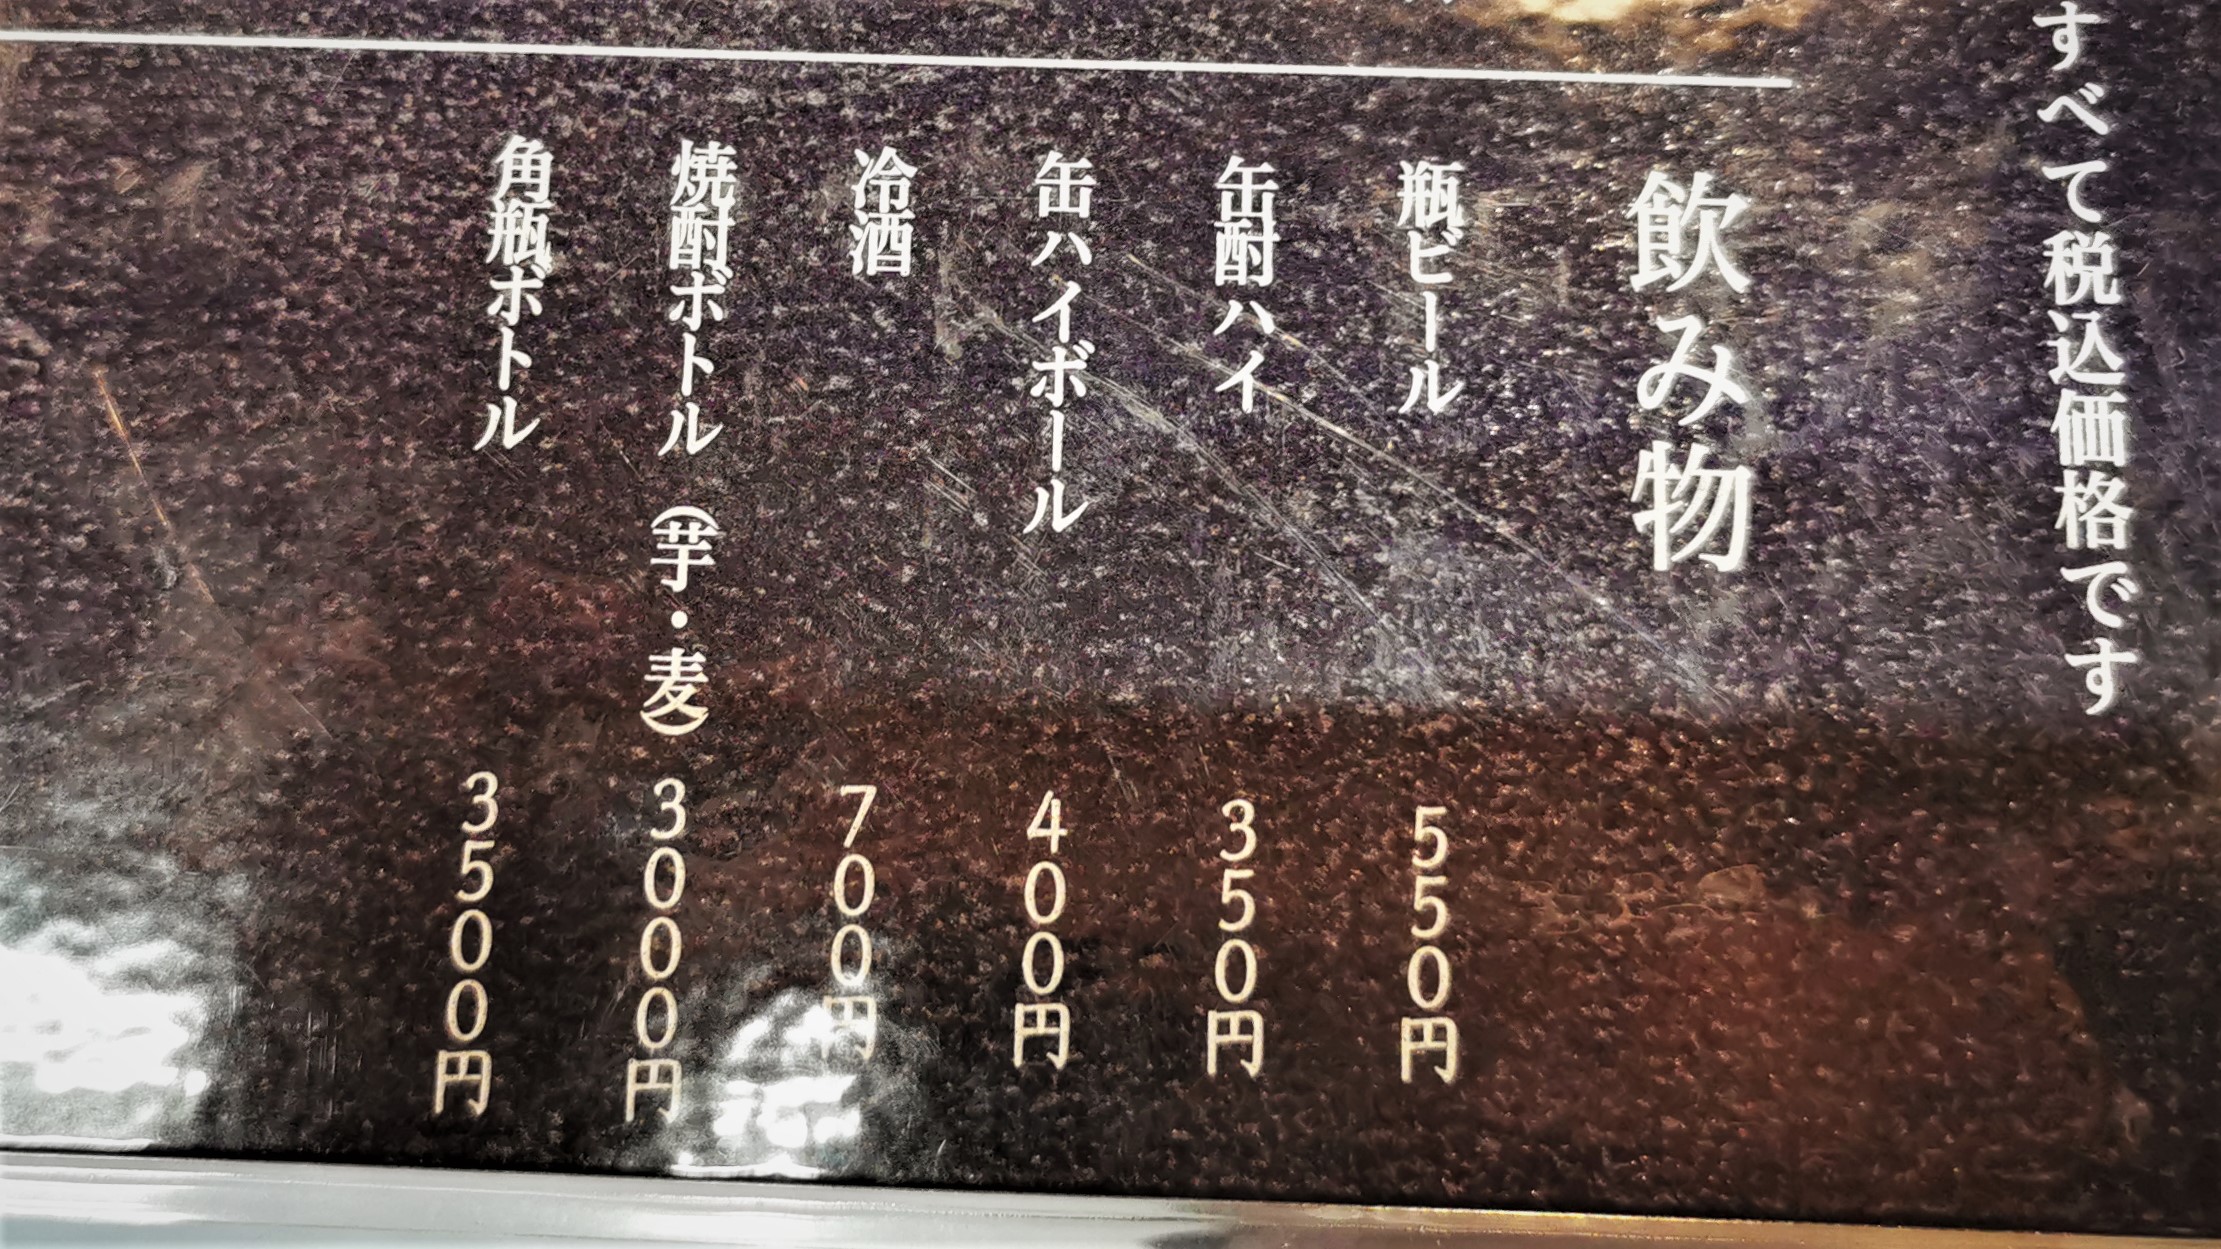 すべて税込価格です
飲み物
瓶ビール 550円
缶酎ハイ 350円
缶ハイボール 400円
冷酒 700円
焼酎ボトル (芋・麦) 3000円
角瓶ボトル 3500円